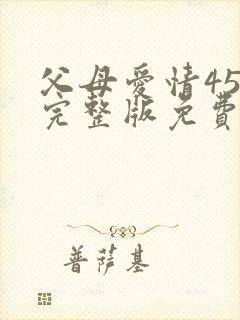 父母爱情45
完整版免費
普萨基